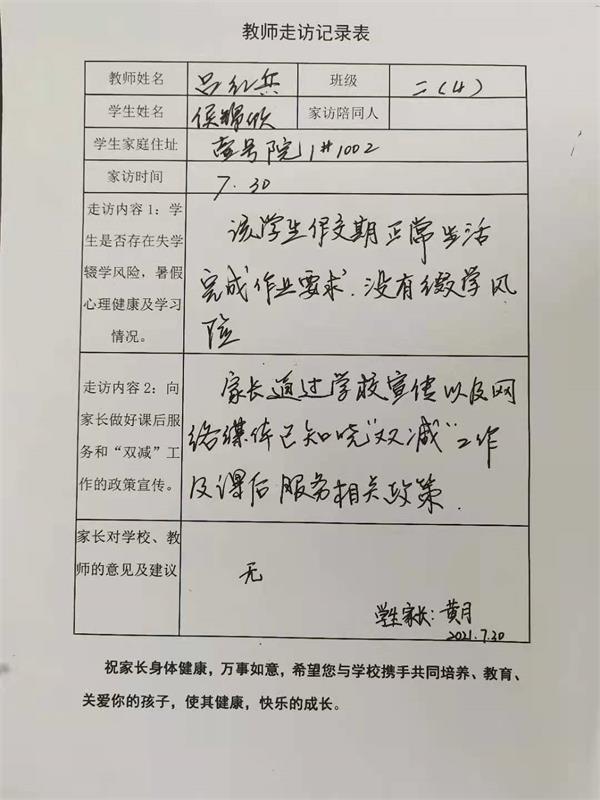 教师走访记录表
教师姓名 吕红兵 班级 二(4)
学生姓名 侯 欣 家访陪同人
学生家庭住址 壹号院1#1002
家访时间 7.30
走访内容1：学
生是否存在失学
辍学风险，暑假
心理健康及学习
情况。
该学生假期正常生活
完成“作业要求”.没有缀学风
险
走访内容2：向
家长做好课后服
务和“双减”工
作的政策宣传。
家长通过学校宣传以及网
络媒体已知晓“双减”工作
及课后服务相关政策.
家长对学校、教
师的意见及建议
无
学生家长：黄月
2021.7.30
祝家长身体健康，万事如意，希望您与学校携手共同培养、教育、
关爱你的孩子，使其健康，快乐的成长。